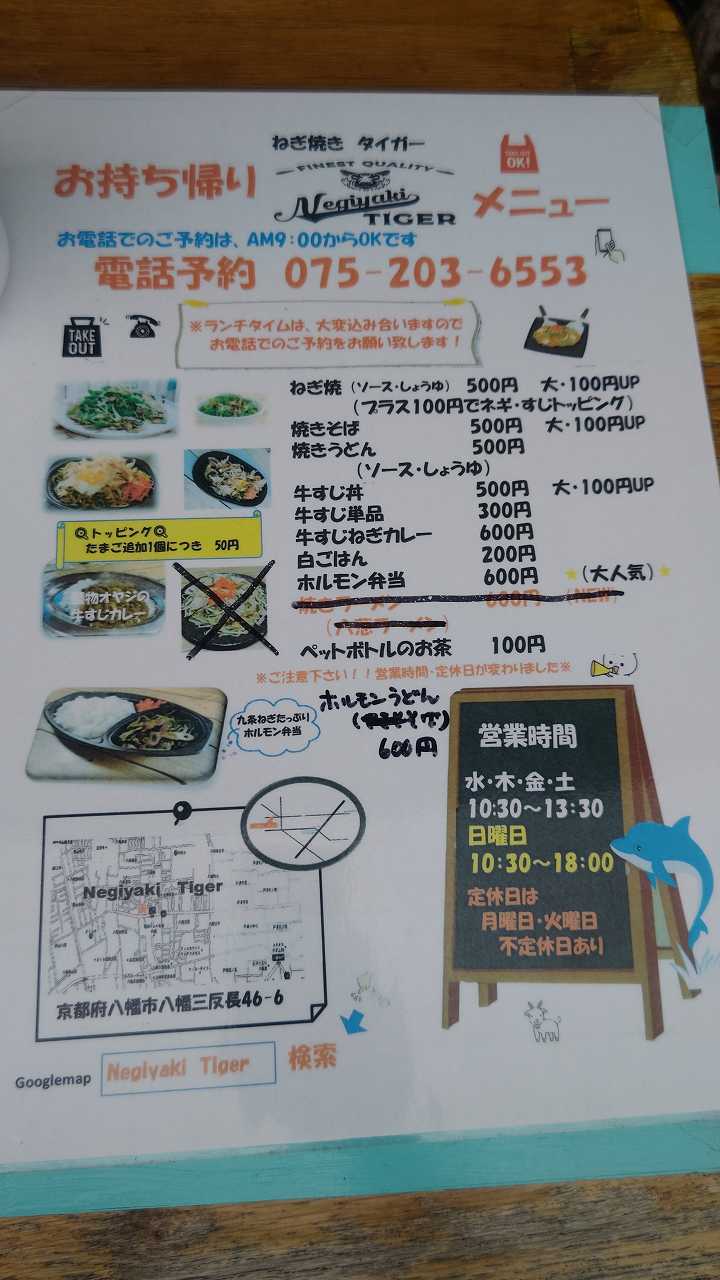 ねぎ焼き タイガー
お持ち帰り
FINEST QUALITY
Negiyaki
TIGER
メニュー
OK!
お電話でのご予約は、AM9:00からOKです
電話予約 075-203-6553
TAKE
OUT
※ランチタイムは、大変込み合いますので
お電話でのご予約をお願い致します!
ねぎ焼(ソース・しょうゆ) 500円 大・100円UP
(プラス100円でネギ・すじトッピング)
焼きそば 500円 大・100円UP
焼きうどん 500円
(ソース・しょうゆ)
牛すじ丼 500円 大・100円UP
牛すじ単品 300円
牛すじねぎカレー 600円
白ごはん 200円
ホルモン弁当 600円 (大人気)
焼きラーメン 600円 (NEW)
ペットボトルのお茶 100円
トッピング
たまご追加1個につき 50円
オヤジの
牛すじカレー
※ご注意下さい!!営業時間・定休日が変わりました※
九条ねぎたっぷり
ホルモン弁当
ホルモンうどん
600円
営業時間
水・木・金・土
10:30~13:30
日曜日
10:30~18:00
定休日は
月曜日・火曜日
不定休日あり
Negiyaki Tiger
京都府八幡市八幡三反長46-6
Googlemap Negiyaki Tiger 検索